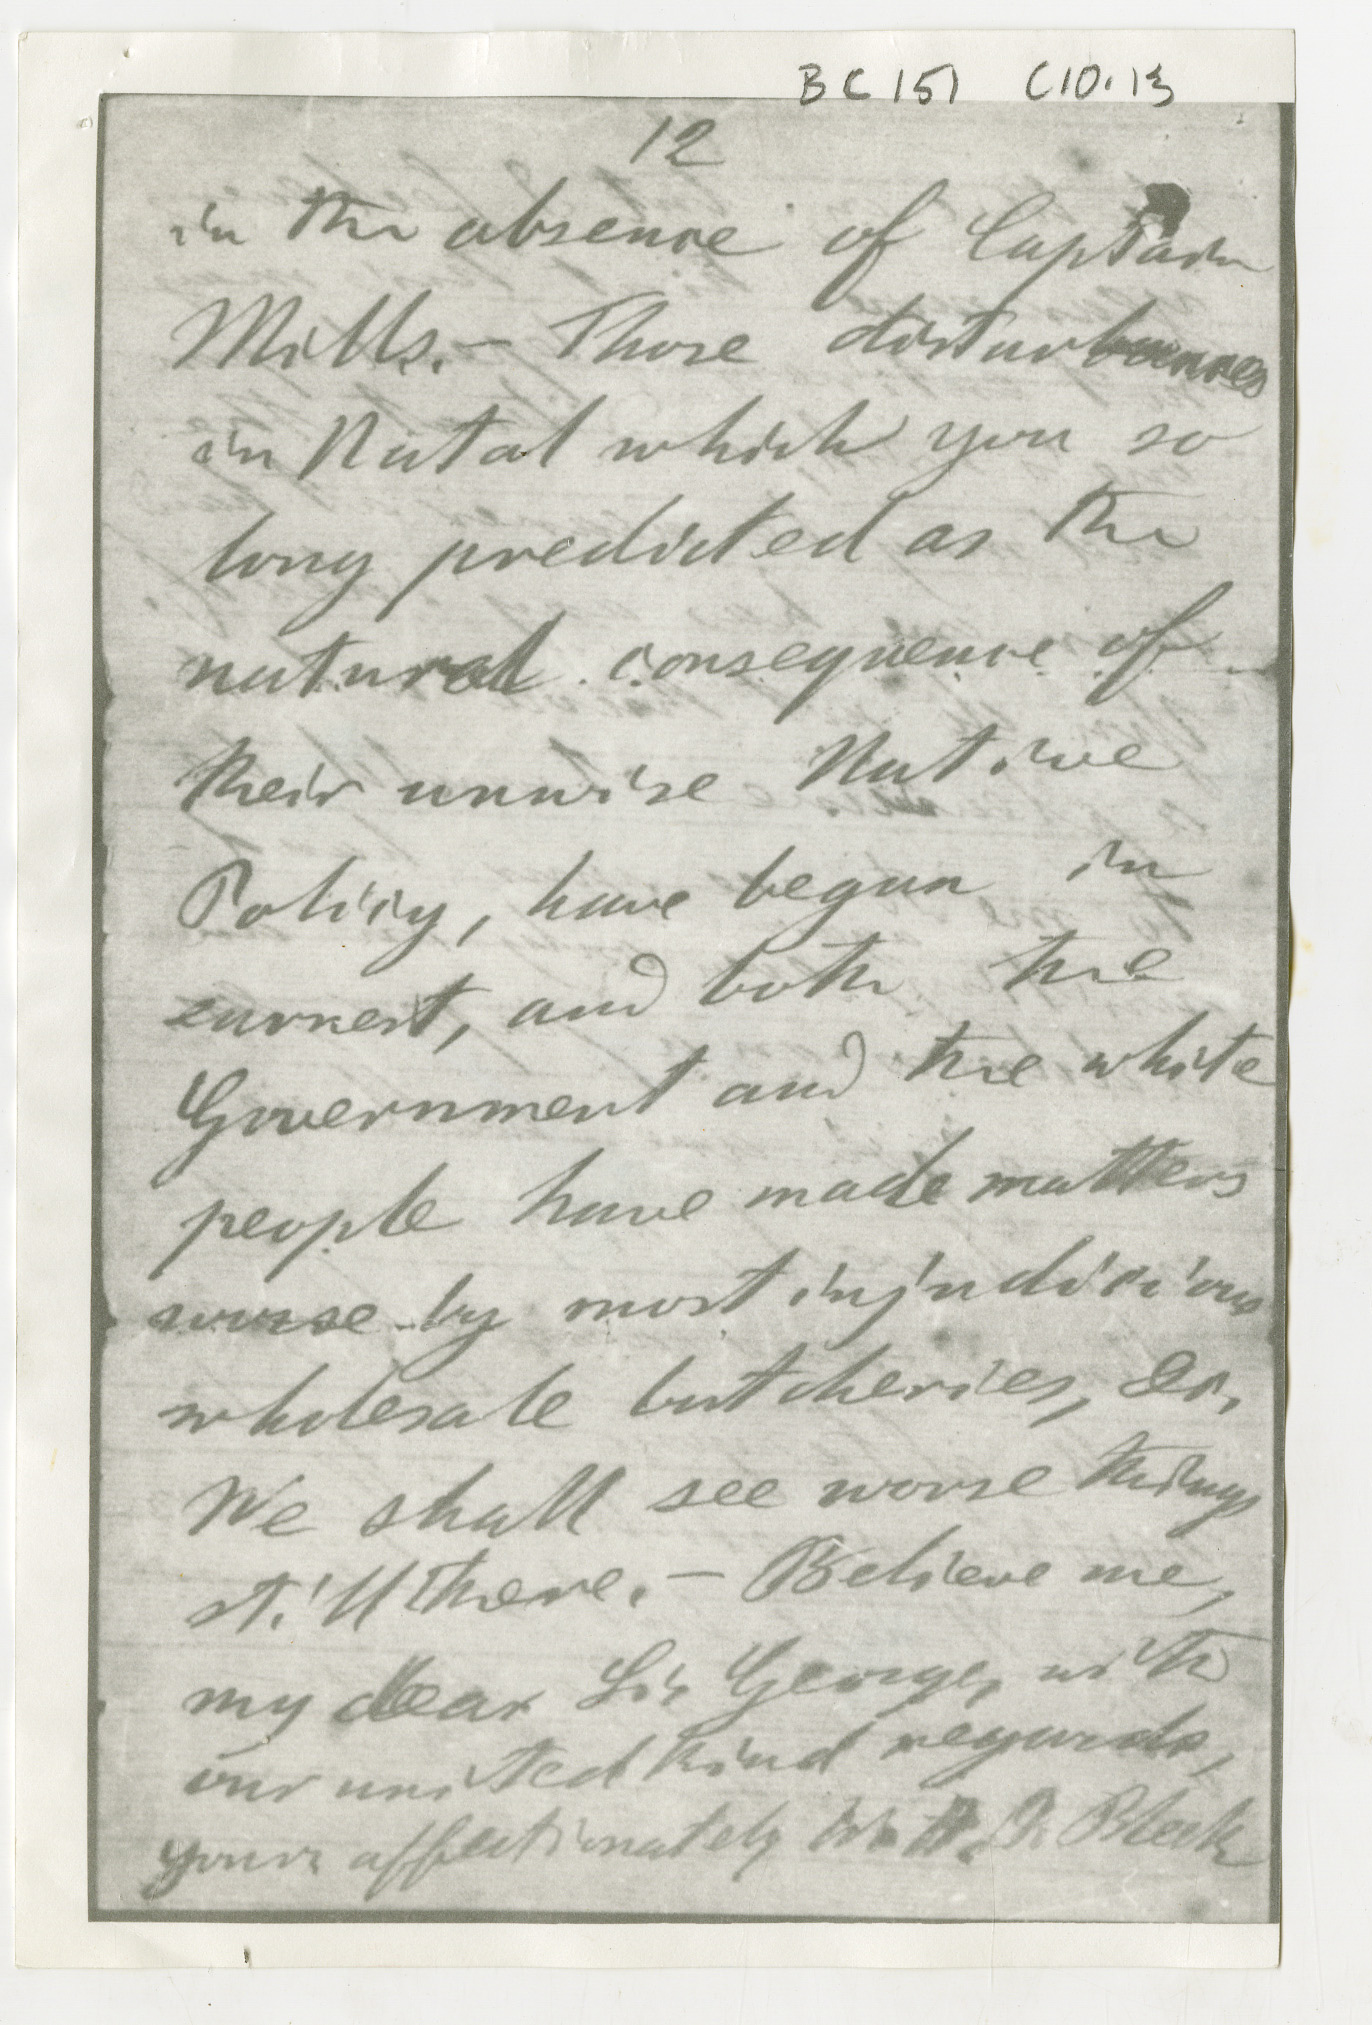 BC 151 C10.13
12
in the absence of Captain
Mills. – Those disturbances
in Natal which you so
long predicted as the
natural consequence of
their unwise Native
Policy, have begun in
earnest, and both the
Government and the white
people have made matters
worse by most injudicious
wholesale butcheries, &c,
We shall see worse things
still there. – Believe me,
my dear Sir George, with
our united kind regards,
yours affectionately W. H. I. Bleek